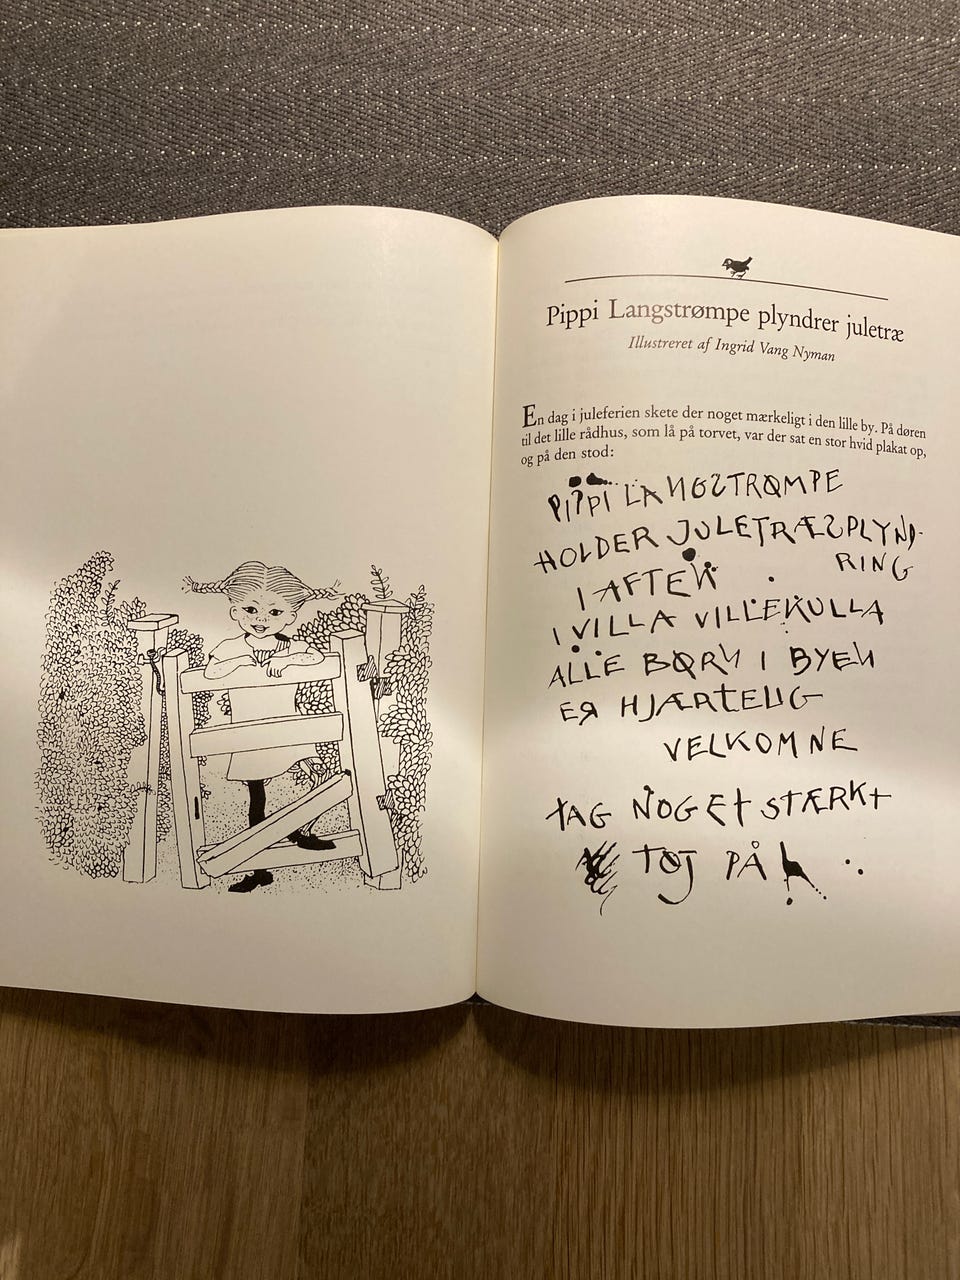 Pippi Langstrømpe plyndrer juletræ
Illustreret af Ingrid Vang Nyman
En dag i juleferien skete der noget mærkeligt i den lille by. På døren
til det lille rådhus, som lå på torvet, var der sat en stor hvid plakat op,
og på den stod:
PIPPI LANGSTRØMPE
HOLDER JULETRÆSPLYND-
RING
I AFTEN
I VILLA VILLEKULLA
ALLE BØRN I BYEN
ER HJÆRTELIG
VELKOMNE
TAG NOGET STÆRKT
TØJ PÅ